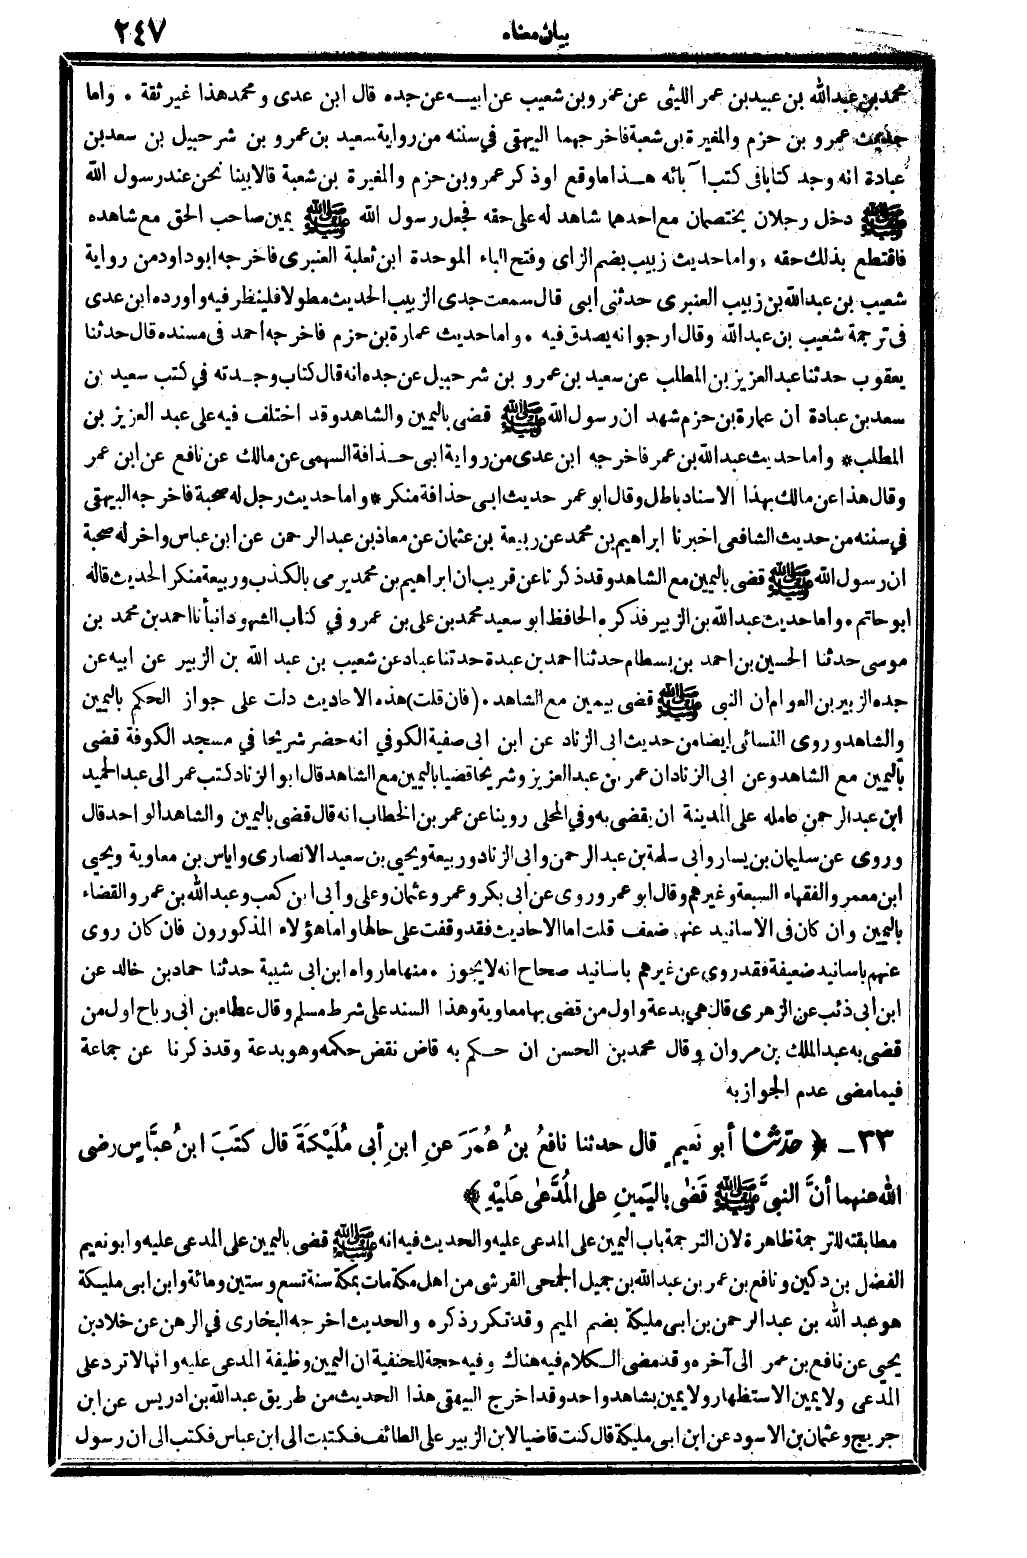 ٢٤٧
بيان معناه
محمد بن عبدالله بن عبيد بن عمر الليثى عن عمرو بن شعيب عن ابيه عن جده قال ابن عدى ومحمد هذا غير ثقة . واما
حديث عمرو بن حزم والمغيرة بى شعبة فاخرجهما البيهقى في سننه من رواية سعيد بن عمرو بن شرحبيل بن سعد بن
عبادة انه وجد كتابا فى كتب آبائه هذا ما وقع او ذكر عمرو بن حزم والمغيرة بن شعبة قالا بينا نحن عند رسول الله
ﷺ دخل رجلان يختصمان مع احدهما شاهد له على حقه فجعل رسول الله ﷺ يمين صاحب الحق مع شاهده
فاقتطع بذلك حقه . واما حديث زبيب بضم الزاى وفتح الباء الموحدة ابن ثعلبة العنبرى فاخرجه ابو داود من رواية
شعيب بن عبدالله بن زبيب العنبرى حدثنى أبى قال سمعت جدى الزبيب الحديث مطولا فلينظر فيه واورده ابن عدى
فى ترجمة شعيب بن عبدالله وقال ارجو انه يصدق فيه . واما حديث عمارة بن حزم فاخرجه احمد فى مسنده قال حدثنا
يعقوب حدثنا عبد العزيز بن المطلب عن سعيد بن عمرو بن شرحبيل عن جده انه قال كتاب وجدته في كتب سعيد بن
سعد بن عبادة ان عمارة بن حزم شهد ان رسول الله ﷺ قضى باليمين والشاهد وقد اختلف فيه على عبد العزيز بن
المطلب * واما حديث عبدالله بن عمر فاخرجه ابن عدى من رواية ابى حذافة السهمى عن مالك عن نافع عن ابن عمر
وقال هذا عن مالك بهذا الاسناد باطل وقال ابو عمر حديث ابى حذافة منكر * واما حديث رجل له صحبة فاخرجه البيهقى
في سننه من حديث الشافعى اخبرنا ابراهيم بن محمد عن ربيعة بن عثمان عن معاذ بن عبد الرحمن عن ابن عباس واخر له صحبة
ان رسول الله ﷺ قضى باليمين مع الشاهد وقد ذكرنا عن قريب ان ابراهيم بن محمد يرمى بالكذب وربيعة منكر الحديث قاله
ابو حاتم . واما حديث عبدالله بن الزبير فذكره الحافظ ابو سعيد محمد بن على بن عمرو في كتاب الشهود انبأنا احمد بن محمد بن
موسى حدثنا الحسين بن احمد بن بسطام حدثنا احمد بن عبدة حدثنا عباد عن شعيب بن عبد الله بن الزبير عن ابيه عن
جده الزبير بن العوام ان النبى ﷺ قضى بيمين مع الشاهد . (فان قلت) هذه الاحاديث دلت على جواز الحكم باليمين
والشاهد وروى النسائى ايضا من حديث ابى الزناد عن ابن ابى صفية الكوفي انه حضر شريحا في مسجد الكوفة قضى
باليمين مع الشاهد وعن ابى الزناد ان عمر بن عبد العزيز وشريحا قضيا باليمين مع الشاهد قال ابو الزناد كتب عمر الى عبد الحميد
ابن عبدالرحمن عامله على المدينة ان يقضى به وفي المحلى روينا عن عمر بن الخطاب انه قال قضى باليمين والشاهد الواحد قال
وروى عن سليمان بن يسار وابى سلمة بن عبدالرحمن وابى الزناد وربيعة ويحيى بن سعيد الانصارى واياس بن معاوية ويحيى
ابن معمر والفقهاء السبعة وغيرهم وقال ابو عمر وروى عن ابى بكر وعمر وعثمان وعلى وأبى ابن كعب وعبدالله بن عمر والقضاء
باليمين وان كان فى الاسانيد عنهم ضعف قلت اما الاحاديث فقد وقفت على حالها واما هؤلاء المذكورون فان كان روى
عنهم باسانيد ضعيفة فقد روى عن غيرهم باسانيد صحاح انه لا يجوز . منها ما رواه ابن ابى شيبة حدثنا حماد بن خالد عن
ابن أبى ذئب عن الزهرى قال هى بدعة واول من قضى بها معاوية وهذا السند على شرط مسلم وقال عطاء بن ابى رباح اول من
قضى به عبد الملك بن مروان وقال محمد بن الحسن ان حكم به قاض نقض حكمه وهو بدعة وقد ذكرنا عن جماعة
فيما مضى عدم الجواز به
٣٣ - ﴿ حدّثنا أبو نَعيمٍ قال حدثنا نافعُ بنُ عُمَرَ عنِ ابنِ أبى مُلَيْكَةَ قال كَتَبَ ابنُ عبَّاسٍ رضى
الله عنهما أنَّ النبىَّ ﷺ قَضَى باليَمينِ على المُدَّعَى عَلَيْهِ ﴾
مطابقته للترجمة ظاهرة لان الترجمة باب اليمين على المدعى عليه والحديث فيه انه ﷺ قضى باليمين على المدعى عليه وابو نعيم
الفضل بن دكين ونافع بن عمر بن عبدالله بن جميل الجمحى القرشى من اهل مكة مات بمكة سنة تسع وستين ومائة وابن ابى مليكة
هو عبد الله بن عبد الرحمن بن ابى مليكة بضم الميم وقد تكرر ذكره والحديث اخرجه البخارى في الرهن عن خلاد بن
يحيى عن نافع بن عمر الى آخره وقد مضى الكلام فيه هناك وفيه حجة للحنفية ان اليمين وظيفة المدعى عليه وانها لا ترد على
المدعى ولا يمين الاستظهار ولا يمين بشاهد واحد وقد اخرج البيهقى هذا الحديث من طريق عبدالله بن ادريس عن ابن
جريج وعثمان بن الاسود عن ابن ابى مليكة قال كنت قاضيا لابن الزبير على الطائف فكتبت الى ابن عباس فكتب الى ان رسول